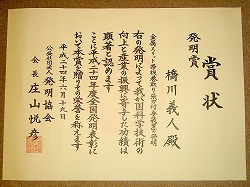 賞状
発明賞
橋川義人殿
右の発明によって我が国科学技術の
向上と産業の振興に寄与した功績は
顕著であります
ここに平成二十四年度全国発明表彰に
おいて本賞を贈りその栄誉を称えます
平成二十四年六月十九日
公益社団法人発明協会
会長 庄山悦彦